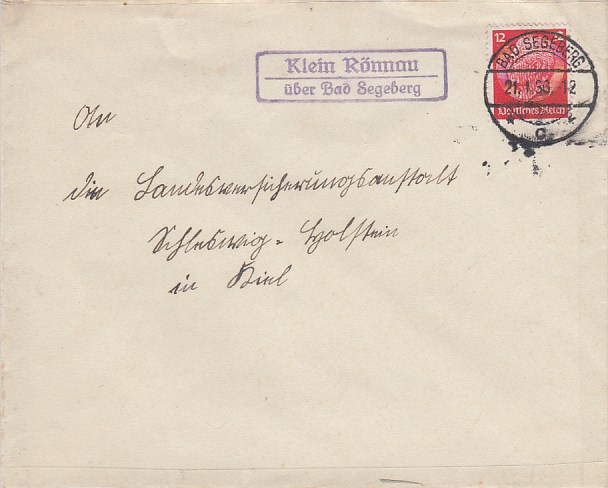 Klein Rönnau
über Bad Segeberg
12
BAD SEGEBERG
21.1. -12
c
Deutsches Reich
An
die Landesversicherungsanstalt
Schleswig-Holstein
in Kiel